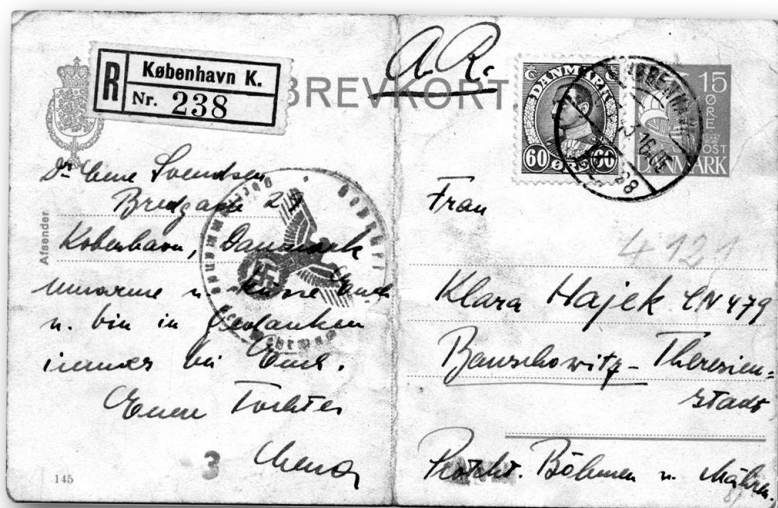 R
København K.
Nr. 238
BREVKORT
A. R.
DANMARK
60 60
15
ØRE
POST
DANMARK
Afsender
Dr. Svendsen
Bredgade
København, Danmark
umarme u. küsse Euch
u. bin in Gedanken
immer bei Euch.
Eure Tochter
3
145
Frau
4121
Klara Hajek CN 479
Bauschowitz - Theresien=
stadt
Protekt. Böhmen u. Mähren.